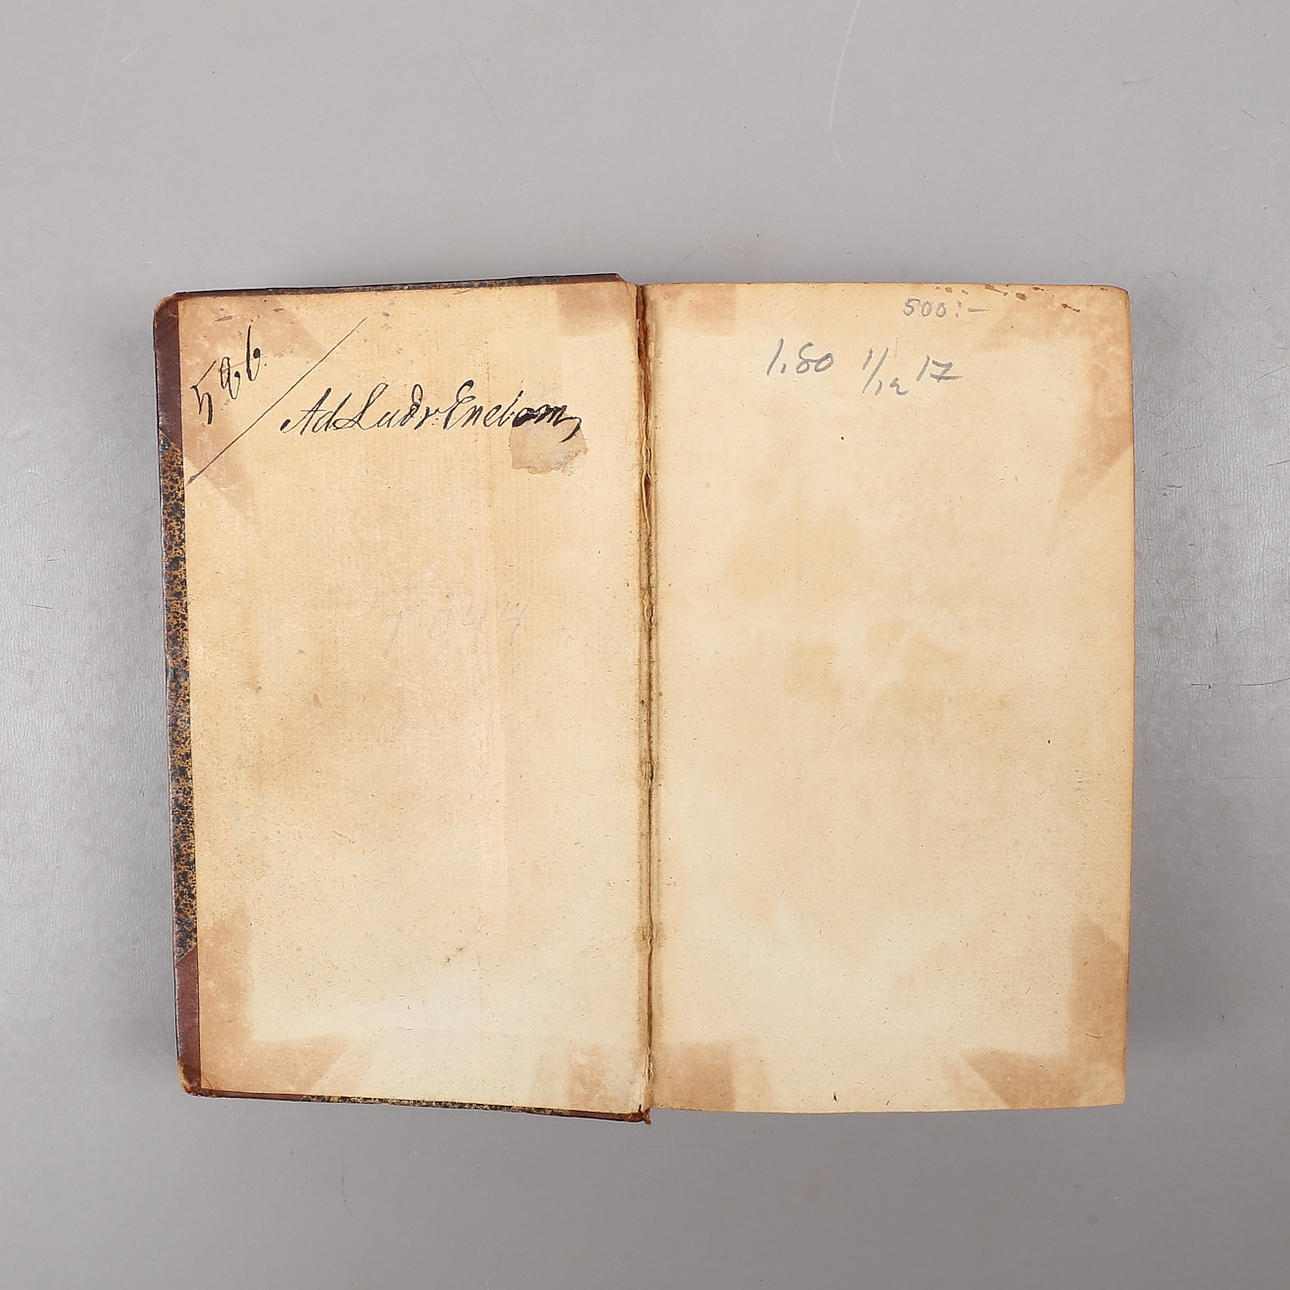 586.
Ad. Ludv. Enebom,
1044
500:-
1,80 1/12 17